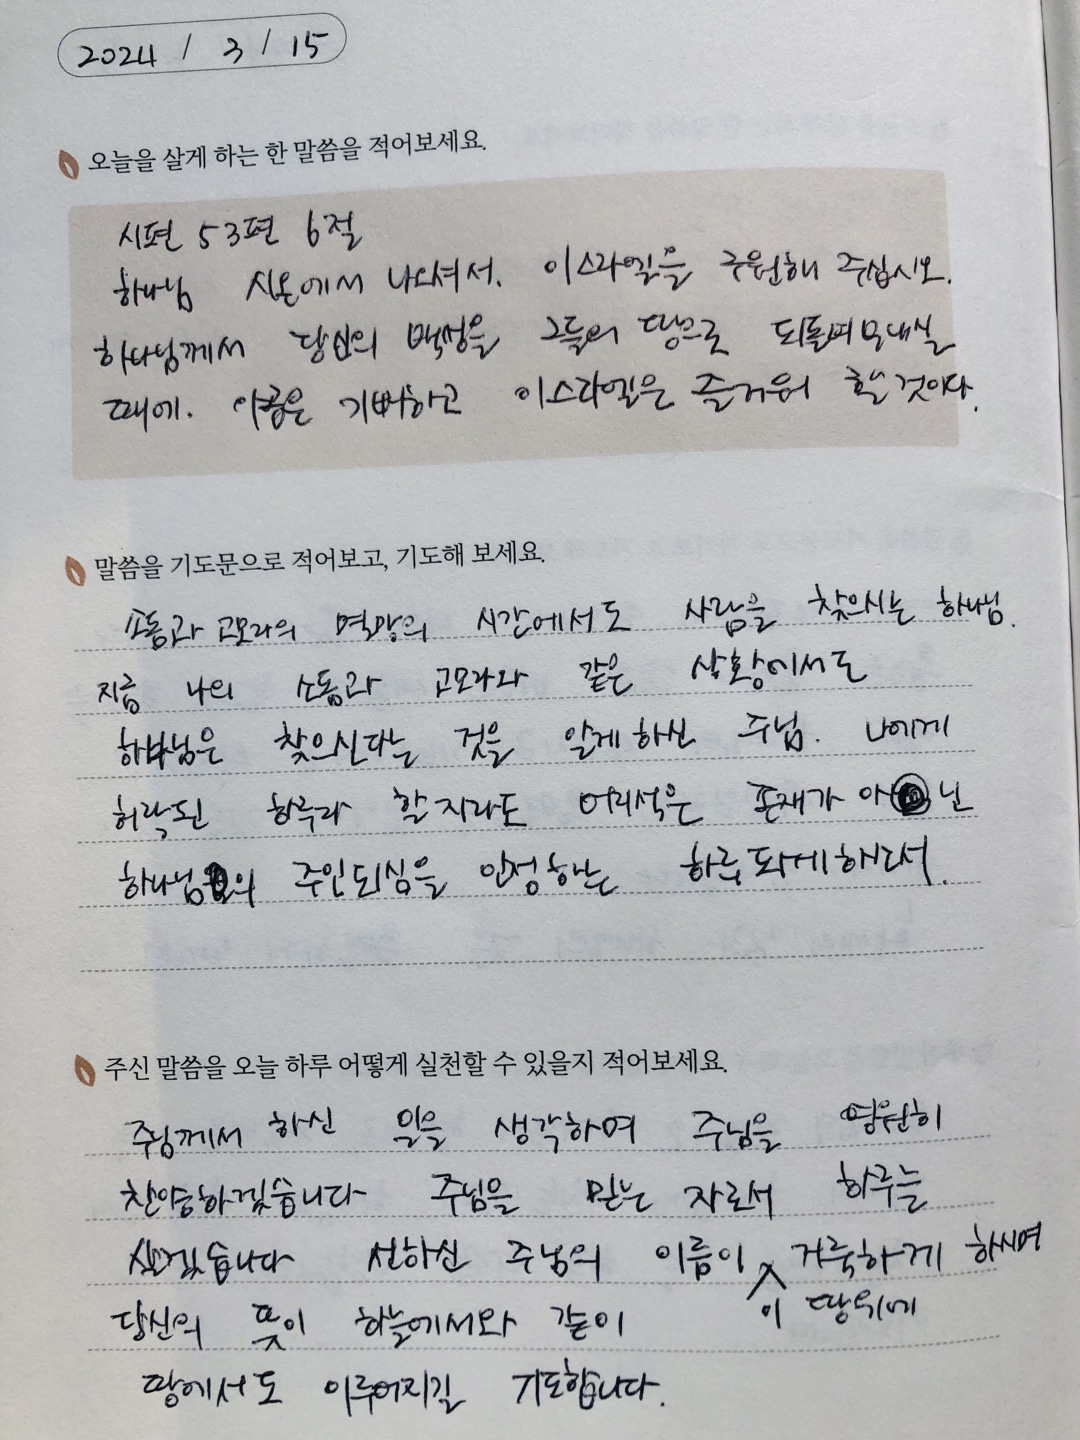 2024 / 3 / 15
오늘을 살게 하는 한 말씀을 적어보세요.
시편 53편 6절
하나님 시온에서 나오셔서. 이스라엘을 구원해 주십시오.
하나님께서 당신의 백성을 그들의 땅으로 되돌려보내실
때에. 야곱은 기뻐하고 이스라엘은 즐거워 할 것이다.
말씀을 기도문으로 적어보고, 기도해 보세요.
소돔과 고모라의 멸망의 시간에서도 사람을 찾으시는 하나님.
지금 나의 소돔과 고모라와 같은 상황에서도
하나님은 찾으신다는 것을 알게하신 주님. 나에게
허락된 하루라 할지라도 어리석은 존재가 아닌
하나님의 주인되심을 인정하는 하루 되게해니서.
주신 말씀을 오늘 하루 어떻게 실천할 수 있을지 적어보세요.
주님께서 하신 일을 생각하며 주님을 영원히
찬양하겠습니다 주님을 믿는 자로서 하루를
살겠습니다 선하신 주님의 이름이 거룩하게 하시며
이 땅위에
당신의 뜻이 하늘에서와 같이
땅에서도 이루어지길 기도합니다.